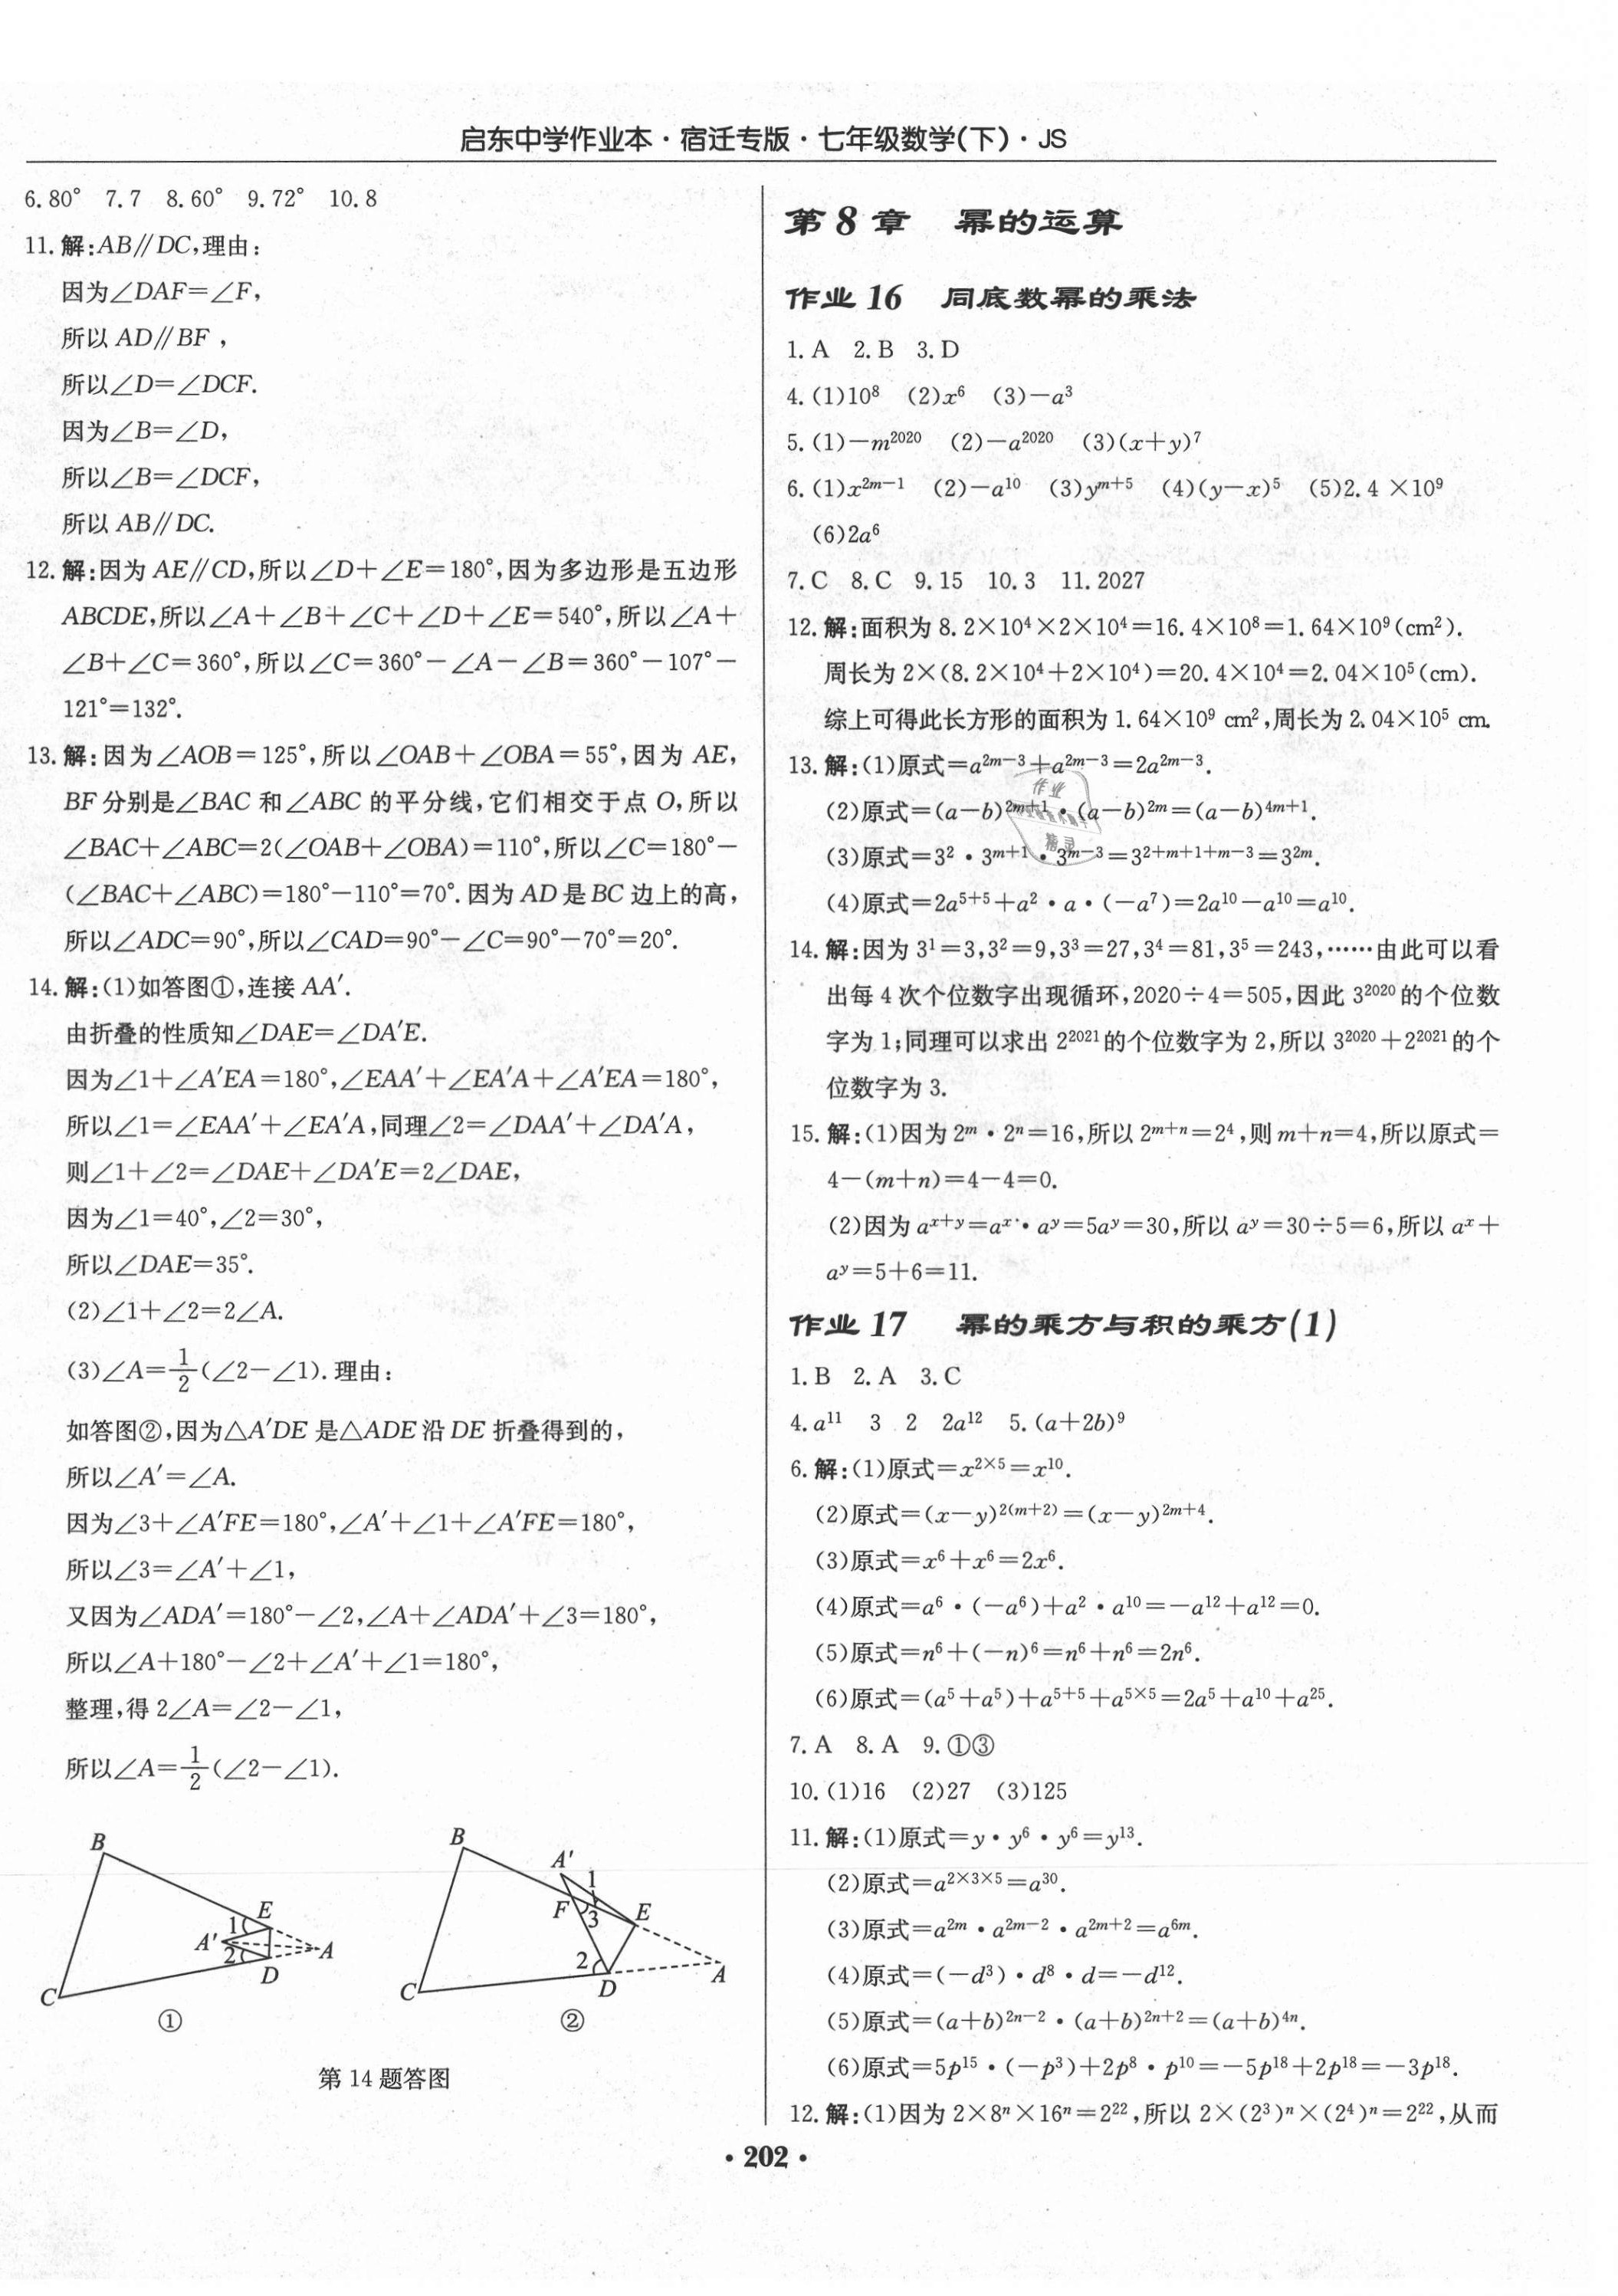 启东中学作业本·宿迁专版·七年级数学(下)·JS
6.80° 7.7 8.60° 9.72° 10.8
11.解:AB∥DC,理由:
因为∠DAF=∠F,
所以 AD∥BF ,
所以∠D=∠DCF.
因为∠B=∠D,
所以∠B=∠DCF,
所以 AB∥DC.
12.解:因为 AE∥CD,所以∠D+∠E=180°,因为多边形是五边形
ABCDE,所以∠A+∠B+∠C+∠D+∠E=540°,所以∠A+
∠B+∠C=360°,所以∠C=360°-∠A-∠B=360°-107°-
121°=132°.
13.解:因为∠AOB=125°,所以∠OAB+∠OBA=55°,因为 AE,
BF 分别是∠BAC 和∠ABC 的平分线,它们相交于点 O,所以
∠BAC+∠ABC=2(∠OAB+∠OBA)=110°,所以∠C=180°-
(∠BAC+∠ABC)=180°-110°=70°.因为 AD 是 BC 边上的高,
所以∠ADC=90°,所以∠CAD=90°-∠C=90°-70°=20°.
14.解:(1)如答图①,连接 AA′.
由折叠的性质知∠DAE=∠DA′E.
因为∠1+∠A′EA=180°,∠EAA′+∠EA′A+∠A′EA=180°,
所以∠1=∠EAA′+∠EA′A,同理∠2=∠DAA′+∠DA′A,
则∠1+∠2=∠DAE+∠DA′E=2∠DAE,
因为∠1=40°,∠2=30°,
所以∠DAE=35°.
(2)∠1+∠2=2∠A.
(3)∠A=1/2(∠2-∠1).理由:
如答图②,因为△A′DE 是△ADE 沿 DE 折叠得到的,
所以∠A′=∠A.
因为∠3+∠A′FE=180°,∠A′+∠1+∠A′FE=180°,
所以∠3=∠A′+∠1,
又因为∠ADA′=180°-∠2,∠A+∠ADA′+∠3=180°,
所以∠A+180°-∠2+∠A′+∠1=180°,
整理,得 2∠A=∠2-∠1,
所以∠A=1/2(∠2-∠1).
B
E
1
A′
2
A
D
C
①
B
A′
1
F
3
E
2
D
A
C
②
第 14 题答图
第 8 章 幂的运算
作业 16 同底数幂的乘法
1.A 2.B 3.D
4.(1)10⁸ (2)x⁶ (3)-a³
5.(1)-m²⁰²⁰ (2)-a²⁰²⁰ (3)(x+y)⁷
6.(1)x^{2m-1} (2)-a¹⁰ (3)y^{m+5} (4)(y-x)⁵ (5)2.4×10⁹
(6)2a⁶
7.C 8.C 9.15 10.3 11.2027
12.解:面积为 8.2×10⁴×2×10⁴=16.4×10⁸=1.64×10⁹(cm²).
周长为 2×(8.2×10⁴+2×10⁴)=20.4×10⁴=2.04×10⁵(cm).
综上可得此长方形的面积为 1.64×10⁹ cm²,周长为 2.04×10⁵ cm.
13.解:(1)原式=a^{2m-3}+a^{2m-3}=2a^{2m-3}.
(2)原式=(a-b)^{2m+1}·(a-b)^{2m}=(a-b)^{4m+1}.
(3)原式=3²·3^{m+1}·3^{m-3}=3^{2+m+1+m-3}=3^{2m}.
(4)原式=2a^{5+5}+a²·a·(-a⁷)=2a¹⁰-a¹⁰=a¹⁰.
14.解:因为 3¹=3,3²=9,3³=27,3⁴=81,3⁵=243,……由此可以看
出每 4 次个位数字出现循环,2020÷4=505,因此 3²⁰²⁰ 的个位数
字为 1;同理可以求出 2²⁰²¹ 的个位数字为 2,所以 3²⁰²⁰+2²⁰²¹ 的个
位数字为 3.
15.解:(1)因为 2^m·2^n=16,所以 2^{m+n}=2⁴,则 m+n=4,所以原式=
4-(m+n)=4-4=0.
(2)因为 a^{x+y}=a^x·a^y=5a^y=30,所以 a^y=30÷5=6,所以 a^x+
a^y=5+6=11.
作业 17 幂的乘方与积的乘方(1)
1.B 2.A 3.C
4.a¹¹ 3 2 2a¹² 5.(a+2b)⁹
6.解:(1)原式=x^{2×5}=x¹⁰.
(2)原式=(x-y)^{2(m+2)}=(x-y)^{2m+4}.
(3)原式=x⁶+x⁶=2x⁶.
(4)原式=a⁶·(-a⁶)+a²·a¹⁰=-a¹²+a¹²=0.
(5)原式=n⁶+(-n)⁶=n⁶+n⁶=2n⁶.
(6)原式=(a⁵+a⁵)+a^{5+5}+a^{5×5}=2a⁵+a¹⁰+a²⁵.
7.A 8.A 9.①③
10.(1)16 (2)27 (3)125
11.解:(1)原式=y·y⁶·y⁶=y¹³.
(2)原式=a^{2×3×5}=a³⁰.
(3)原式=a^{2m}·a^{2m-2}·a^{2m+2}=a^{6m}.
(4)原式=(-d³)·d⁸·d=-d¹².
(5)原式=(a+b)^{2n-2}·(a+b)^{2n+2}=(a+b)^{4n}.
(6)原式=5p¹⁵·(-p³)+2p⁸·p¹⁰=-5p¹⁸+2p¹⁸=-3p¹⁸.
12.解:(1)因为 2×8^n×16^n=2²²,所以 2×(2³)^n×(2⁴)^n=2²²,从而
·202·